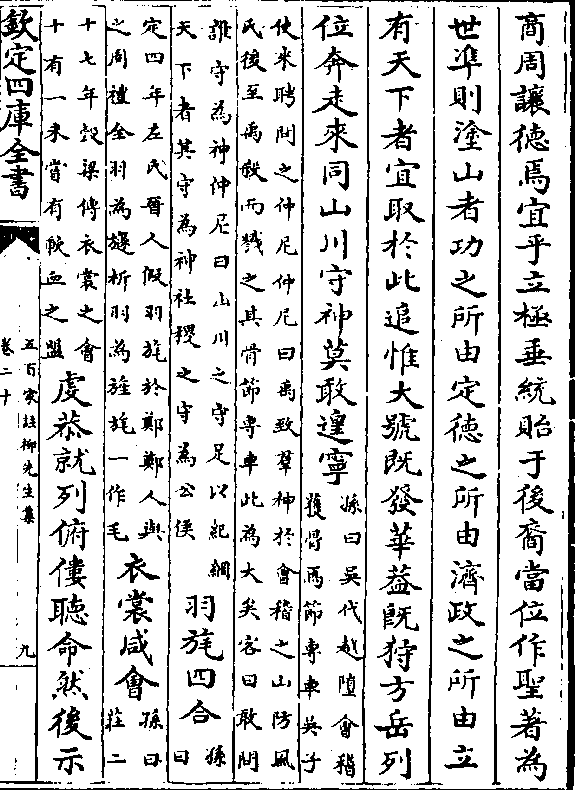 商周讓徳焉宜乎立極垂統貽于後裔當位作聖著為
世凖則塗山者功之所由定徳之所由濟政之所由立
有天下者宜取於此追惟大號既發華葢既狩方岳列
位奔走來同山川守神莫敢遑寧孫曰吳代越墮會稽
獲骨焉節専車吳子
使來聘問之仲尼仲尼曰禹致羣神於會稽之山防風
氏後至禹殺而戮之其骨節専車此為大矣客曰敢問
誰守為神仲尼曰山川之守足以紀綱
天下者其守為神社稷之守為公侯羽旄四合孫
曰
定四年左氏晉人假羽旄於鄭鄭人與
之周禮全羽為旞析羽為旌旄一作毛衣裳咸會孫曰
莊二
十七年榖梁傳衣裳之會
十有一未嘗有歃血之盟䖍恭就列俯僂聽命然後示
欽定四庫全書
五百家註柳先生集
卷二十
九